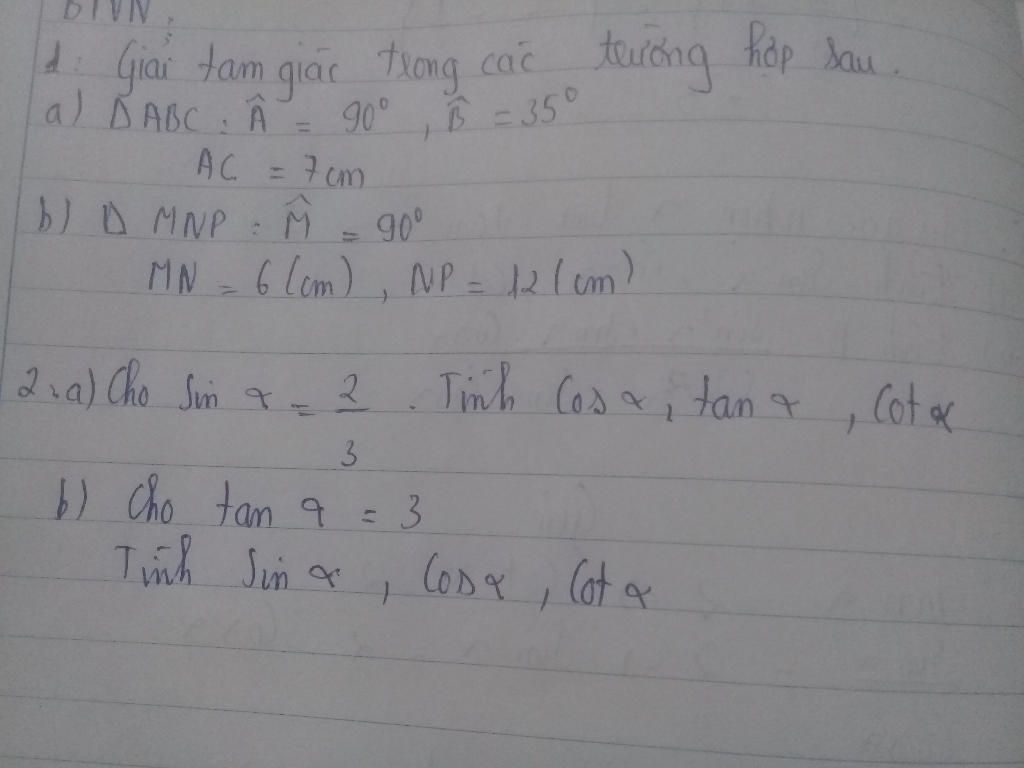 BTVN.
1. Giải tam giác trong các trường hợp sau.
a) ΔABC : Â = 90°, B̂ = 35°
AC = 7cm
b) Δ MNP : M̂ = 90°
MN = 6 (cm), NP = 12 (cm)
2. a) Cho Sin α = 2/3. Tính Cos α, tan α, Cot α
b) Cho tan α = 3
Tính Sin α, Cos α, Cot α